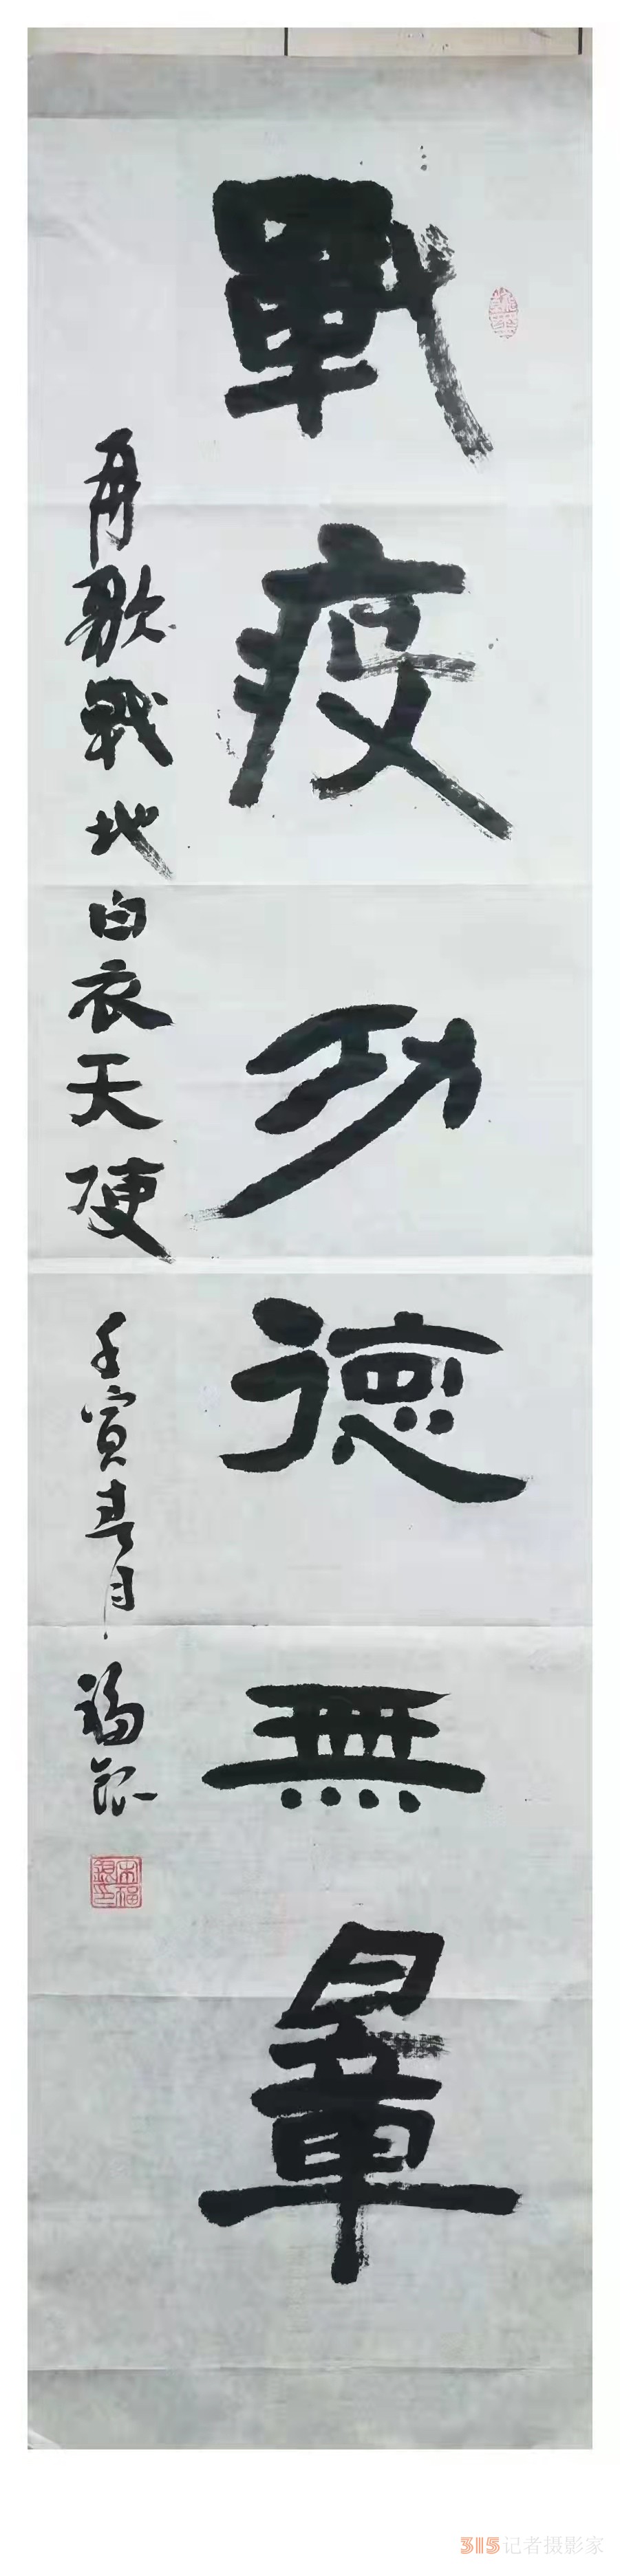 戰疫功德無量
再歌戰地白衣天使 壬寅春月 福
315记者摄影家